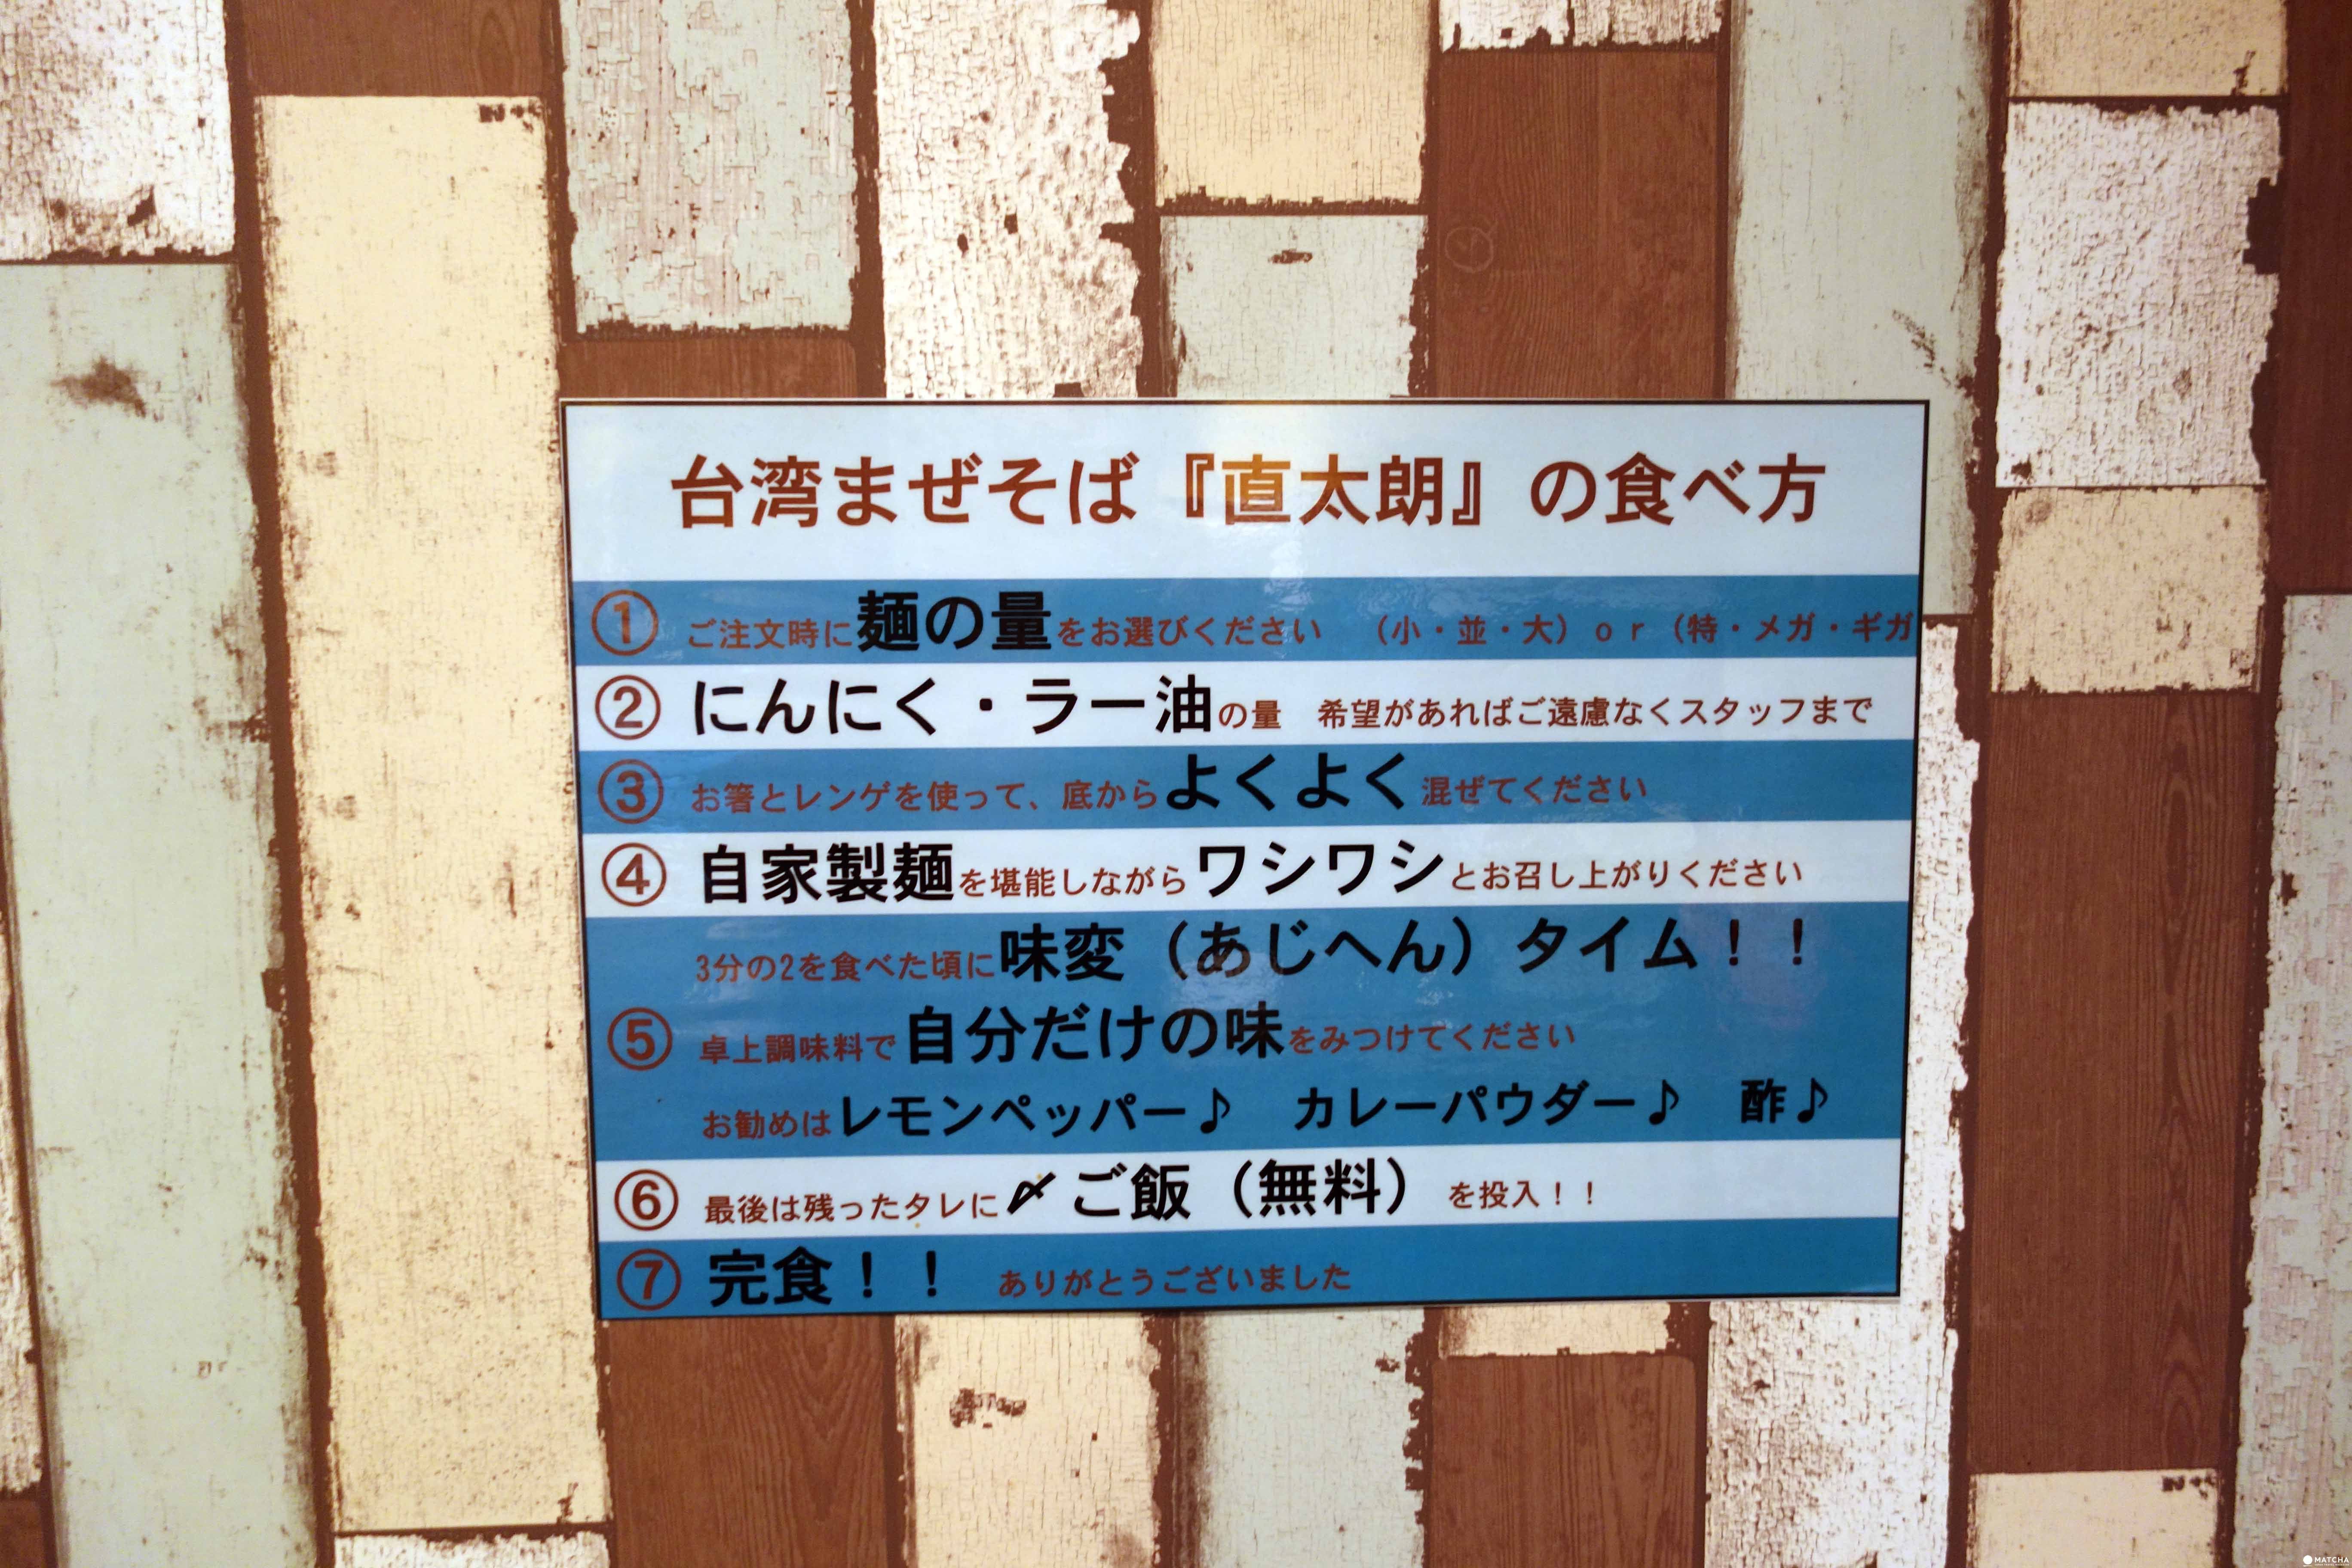 台湾まぜそば『直太朗』の食べ方
① ご注文時に麺の量をお選びください （小・並・大）ｏｒ（特・メガ・ギガ
② にんにく・ラー油の量 希望があればご遠慮なくスタッフまで
③ お箸とレンゲを使って、底からよくよく混ぜてください
④ 自家製麺を堪能しながらワシワシとお召し上がりください
3分の2を食べた頃に味変（あじへん）タイム！！
⑤ 卓上調味料で自分だけの味をみつけてください
お勧めはレモンペッパー♪ カレーパウダー♪ 酢♪
⑥ 最後は残ったタレに〆ご飯（無料）を投入！！
⑦ 完食！！ ありがとうございました
MATCHA